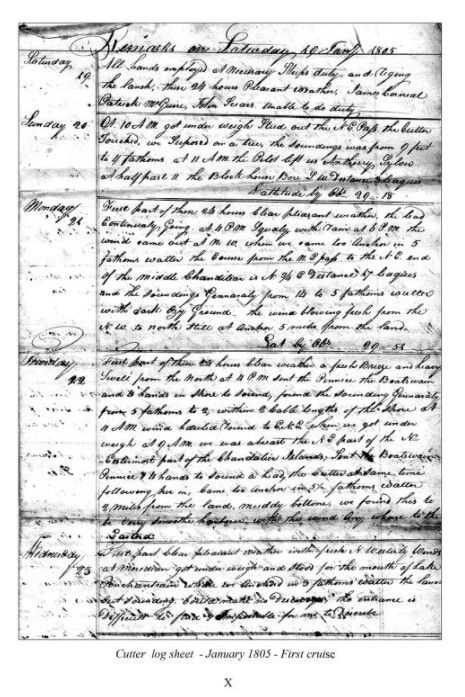 Remarks on Saturday 19 Jany 1805
Saturday
19
All hands employed at Necessary Ships duty, and
the Lanch, these 24 hours Pleasant Weather, James
Patrick McGuire, John Sears unable to do duty
Sunday 20
At 10 A M got under weigh Stud out the N E Pass the Cutter
Touched, we Suposed on a tree, the Soundings was from 9 feet
to 4 fathoms at 11 A M the Pilot left us
at half past 11 the Block house Bore Distance 3 leagues
Latitude by Obs. 29-18
Monday
21
First part of these 24 hours Clear pleasant weather, the lead
Continualy Going. at 4 P M Squaly with Rain at 6 P M the
wind came out at N W, when we came too Anchor in 5
fathoms watter the Course from the N E pass to the N E end
of the Middle Chandiliar is N 3/4 E Distance leagues
and the Soundings Genneraly from 14 to 5 fathoms watter
with dark Ground. the wind blowing fresh from the
N W to North Still at Anchor 5 miles from the land.
Lat by Obs. 29-55
22
First part of these 24 hours Clear weather a fresh Breeze and heavy
Swell from the North at 4 P M Sent the Pennice the Boatswain
and 3 hands in Shore to Sound, found the Sounding Genneraly
from 5 fathoms to 2, within 2 Cable lengths of the Shore At
4 A M wind hauled Round to E N E when we got under
weigh at 9 A M we was abreast the N E part of the N
part of the Chandalier Islands, Sent the Boatswain
Pennice & 4 hands to Sound a head, the Cutter at Same time
following her in, Came too Anchor in fathoms watter
2 miles from the land, muddy bottom, we found this to
be very Smoothe harbour, with the wind any whare to the
Wednesday
23
First part Clear pleasant weather with fresh N Easterly Winds
at Meridian got under weigh and Stood for the mouth of Lake
where we Anchord in 3 fathoms watter the
Sounding Could make no Discovery, the entrance is
Dificult to find & Imposible for me to Discribe
Cutter log sheet - January 1805 - First cruise
X